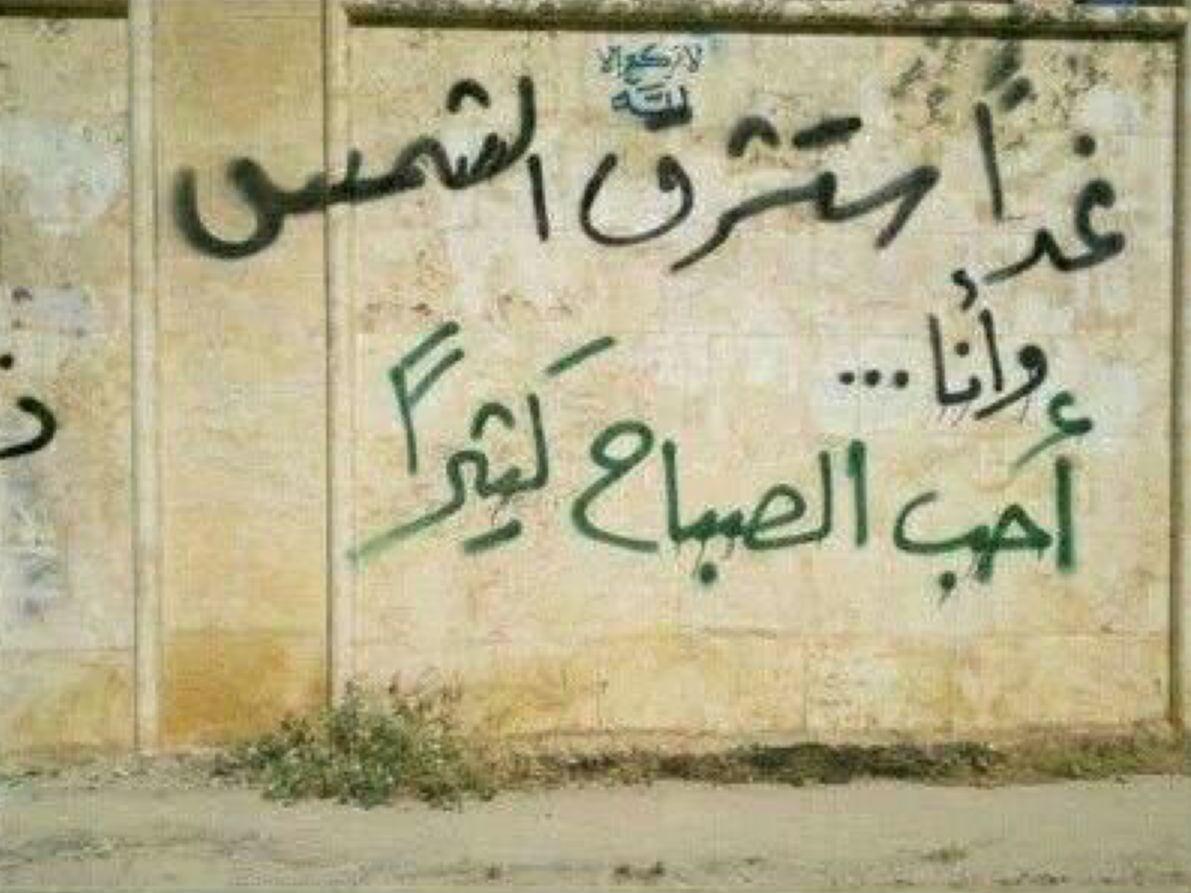 لا نركع إلا
لله
غداً ستشرق الشمس
وأنا ...
أحب الصباح كثيراً